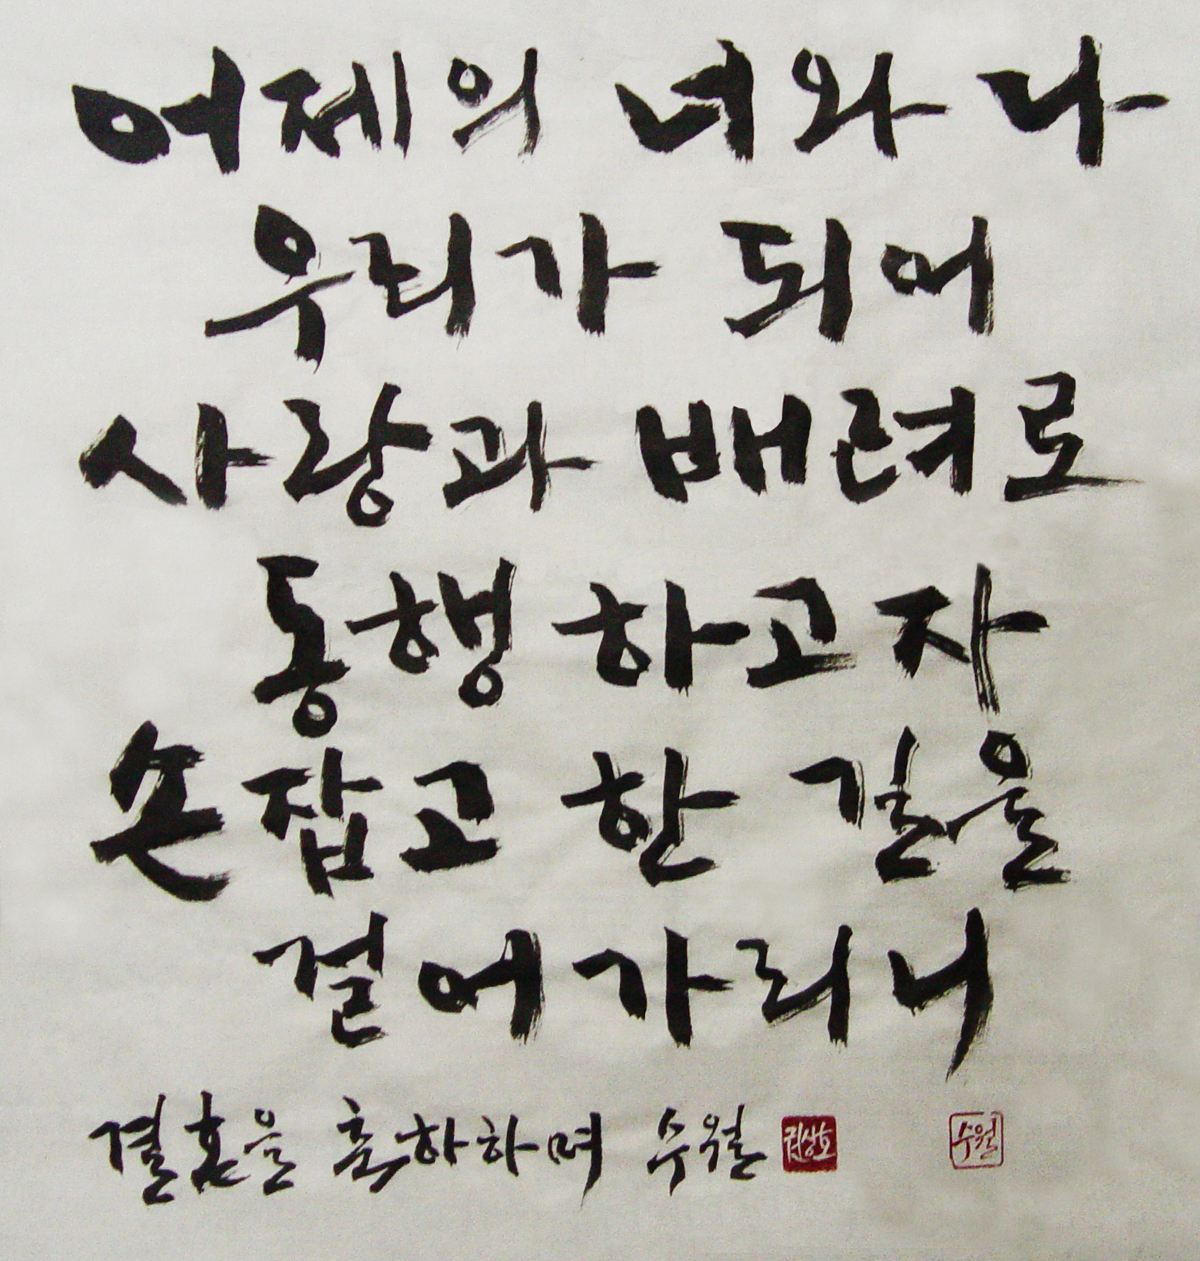 어제의 너와 나
우리가 되어
사랑과 배려로
동행 하고자
손잡고 한 길을
걸어가리니
결혼을 축하하며 수월 권상호 수월